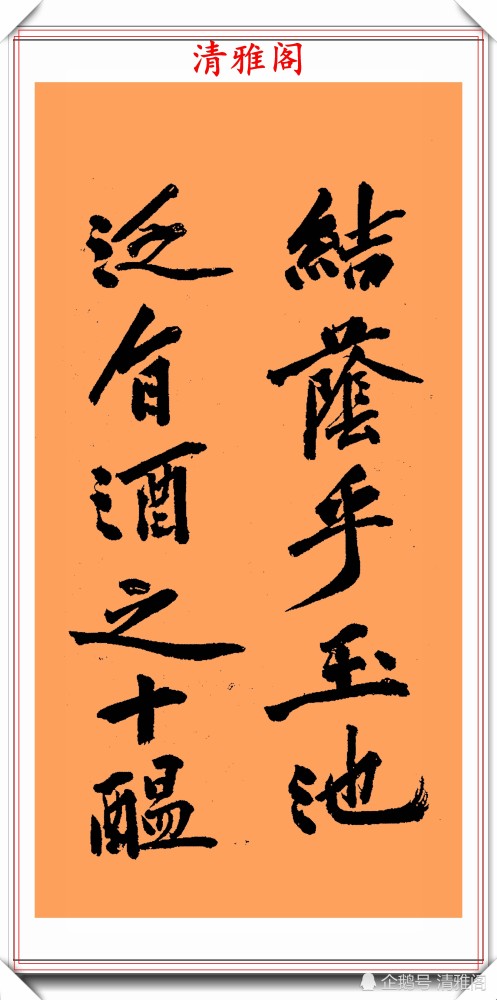 清雅阁
結蔭乎玉池
泛旨酒之十醞
企鹅号 清雅阁